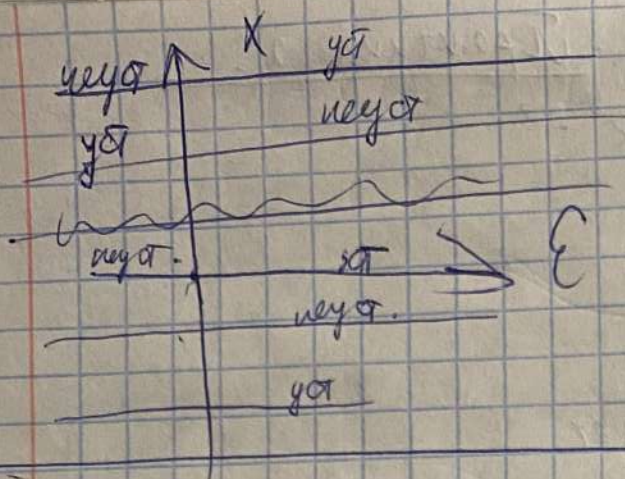 X уст
неуст
неуст
уст
ε
неуст. уст
неуст.
уст